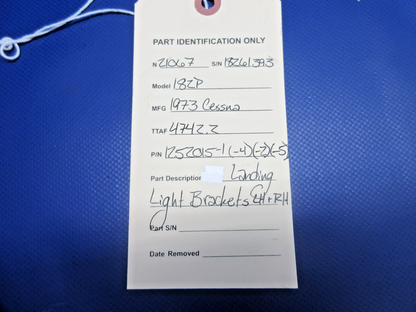 PART IDENTIFICATION ONLY
N 21067 S/N 18261393
Model 182P
MFG 1973 Cessna
TTAF 4742.2
P/N 1252015-1 (-4)(-2)(-5)
Part Description Landing
Light Brackets LH + RH
Part S/N
Date Removed